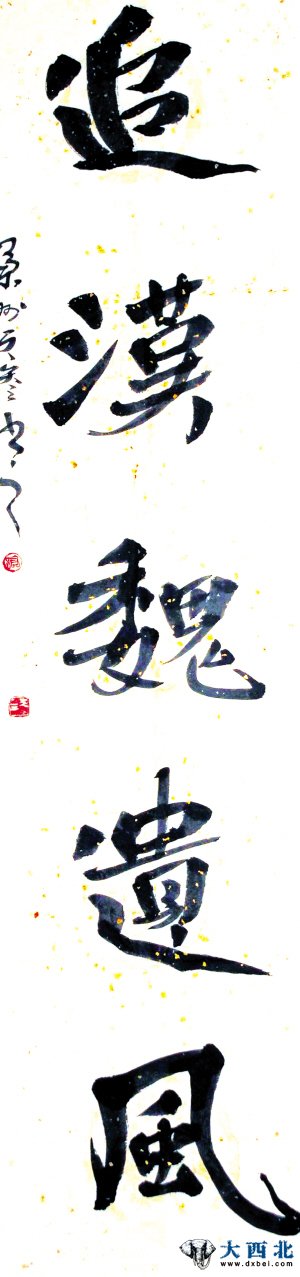 追漢魏遺風
大西北
www.dxbei.com